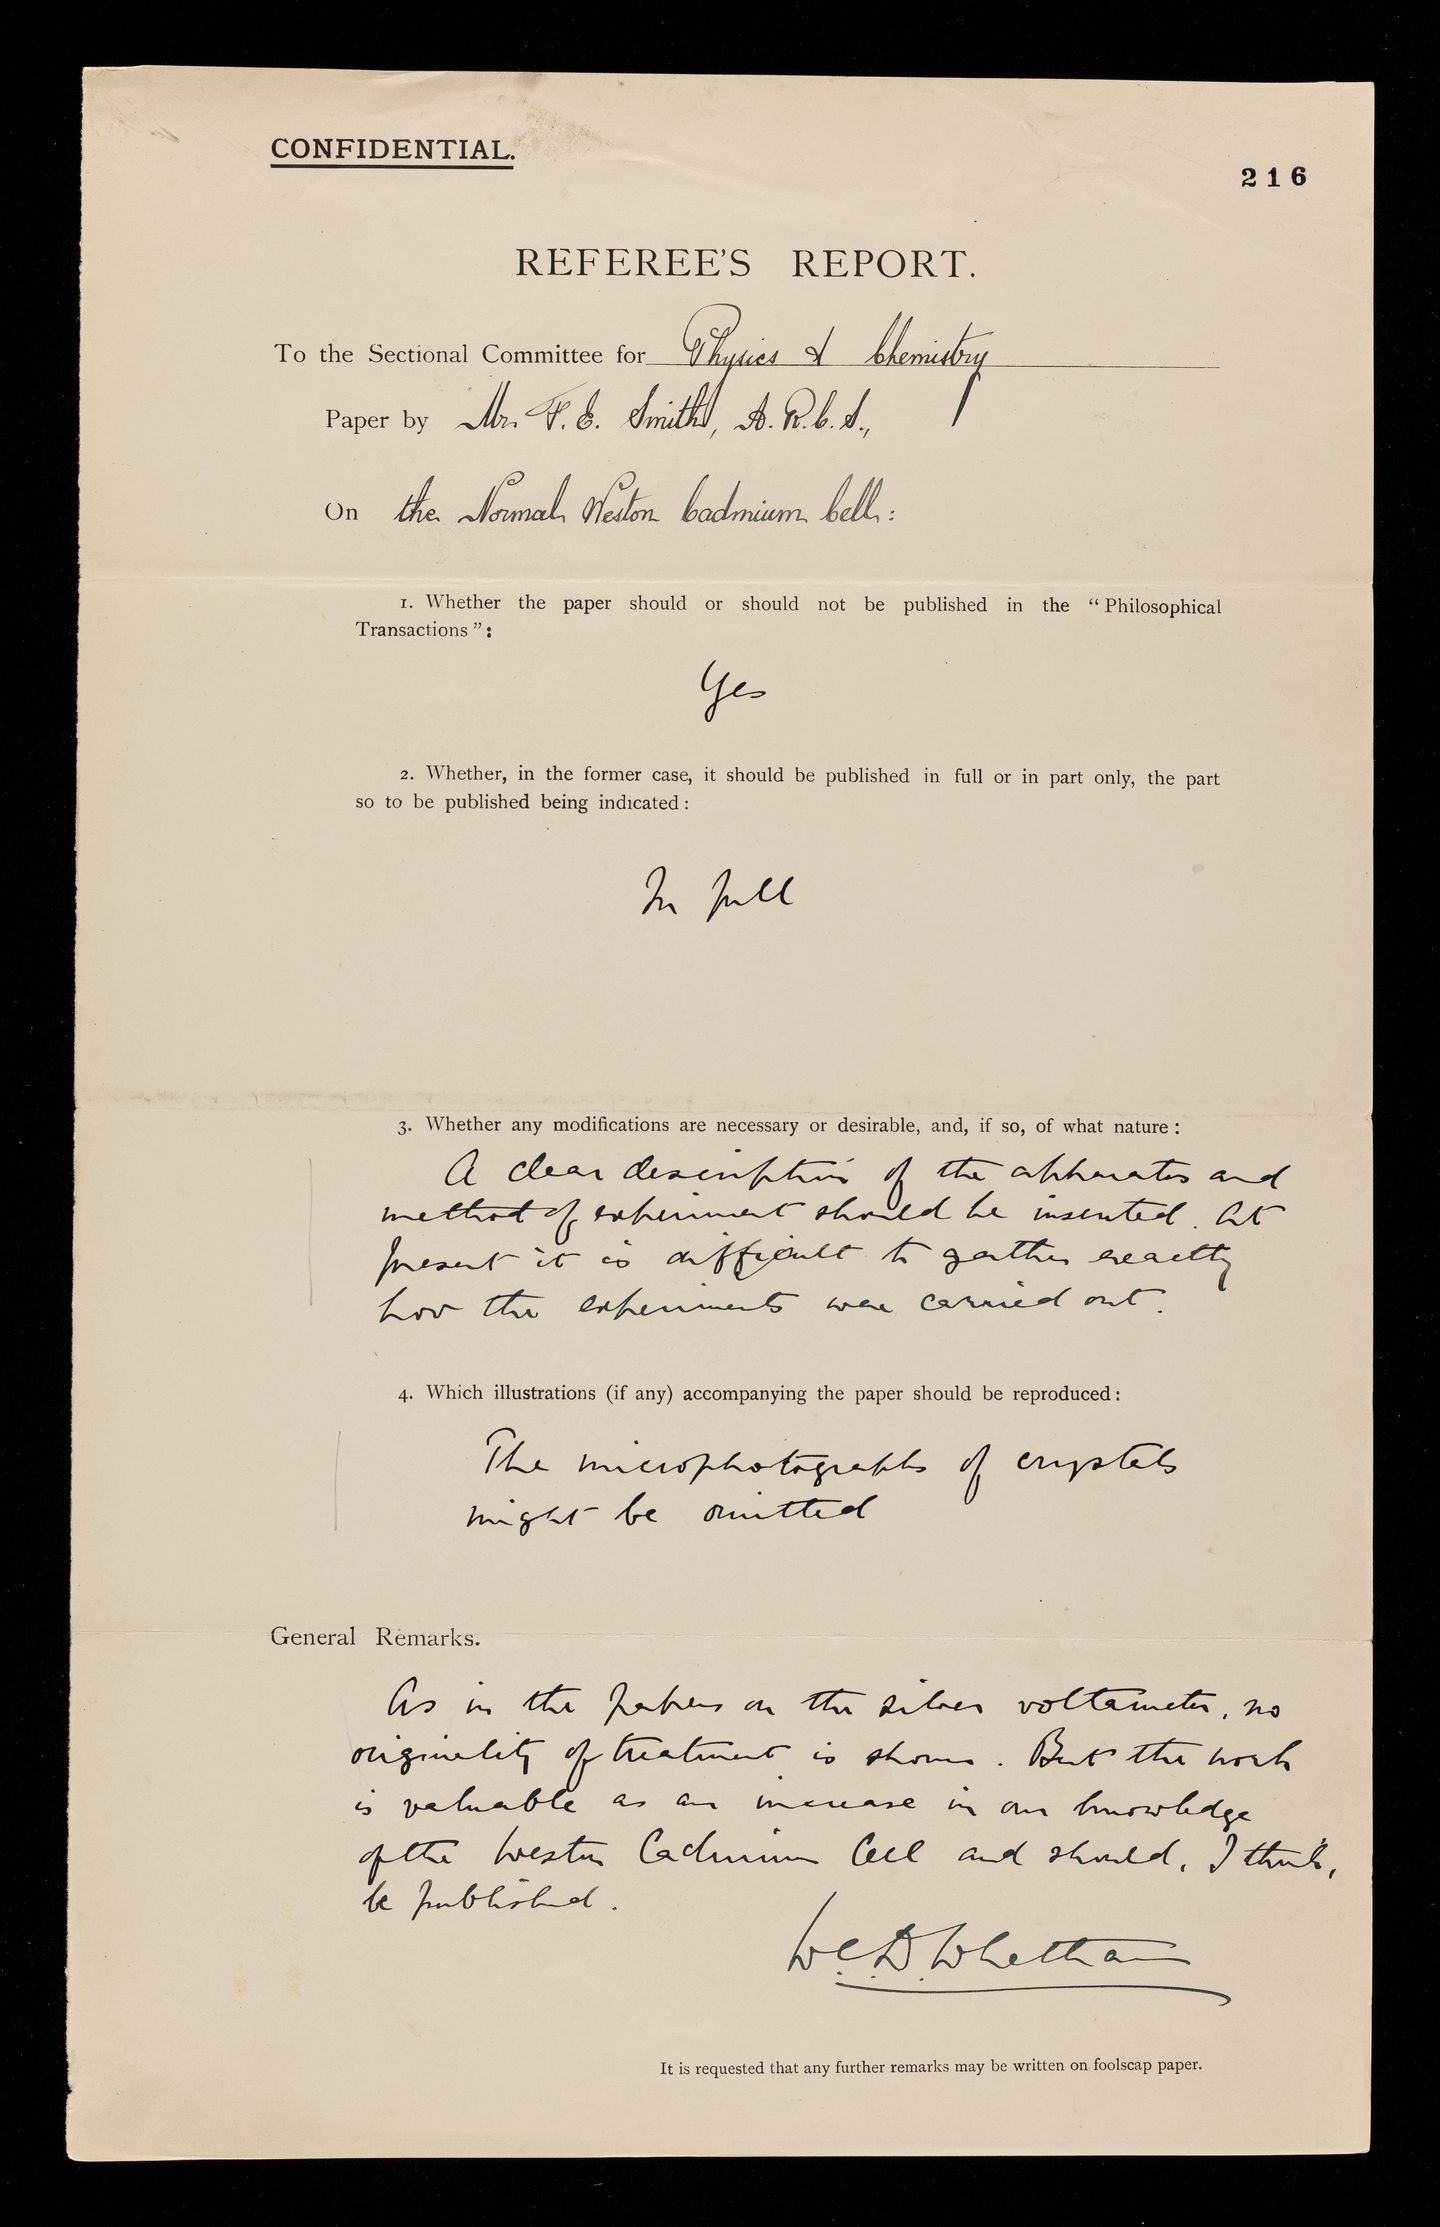 CONFIDENTIAL.
216
REFEREE'S REPORT.
To the Sectional Committee for Physics & Chemistry
Paper by Mr. F. E. Smith, A.R.C.S.,
On the Normal Weston Cadmium Cell:
1. Whether the paper should or should not be published in the "Philosophical
Transactions":
Yes
2. Whether, in the former case, it should be published in full or in part only, the part
so to be published being indicated:
In full
3. Whether any modifications are necessary or desirable, and, if so, of what nature:
A clear description of the apparatus and
method of experiment should be inserted. At
present it is difficult to gather exactly
how the experiments were carried out.
4. Which illustrations (if any) accompanying the paper should be reproduced:
The microphotographs of crystals
might be omitted
General Remarks.
As in the papers on the silver voltameter, no
originality of treatment is shown. But the work
is valuable as an increase in our knowledge
of the Weston Cadmium Cell and should, I think,
be published.
W.C.D. Whetham
It is requested that any further remarks may be written on foolscap paper.